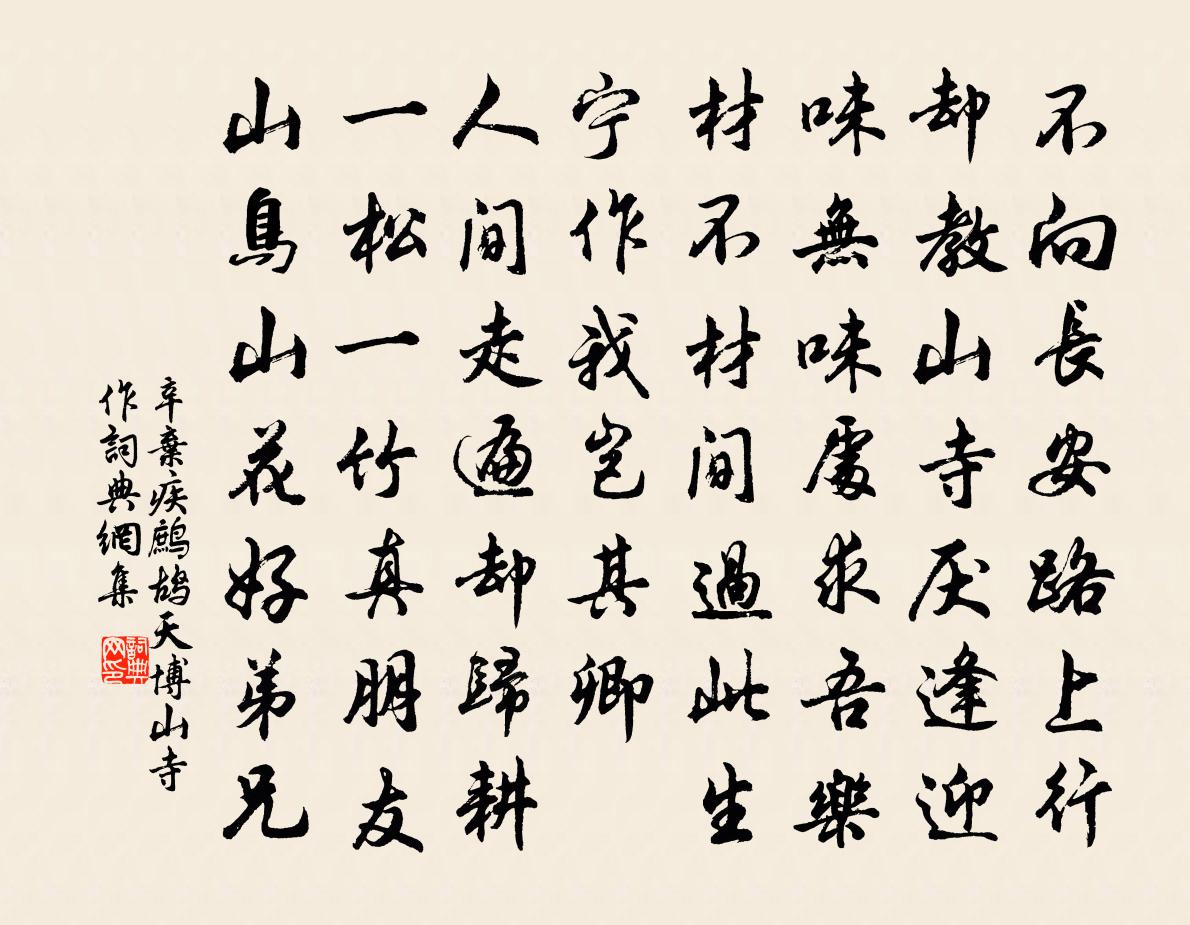 不向長安路上行
却教山寺厌逢迎
味無味處求吾樂
材不材間過此生
宁作我岂其卿
人间走遍却歸耕
一松一竹真朋友
山鳥山花好弟兄
辛棄疾鷓鴣天博山寺
作詞典網集
詞典
网印